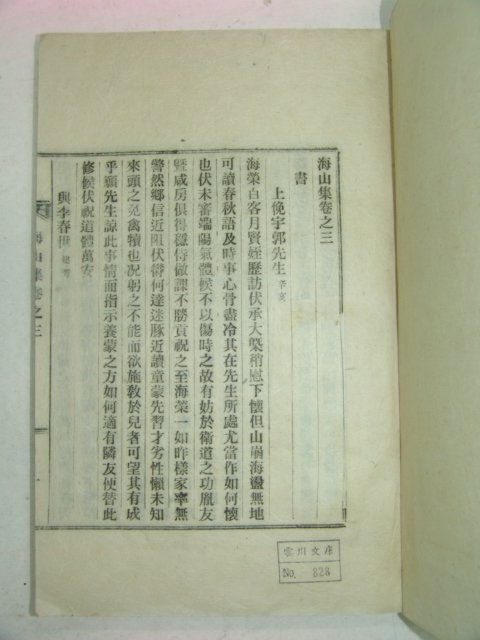 海山集卷之三
書
上俛宇郭先生 辛亥
海榮白客月賢姪歷訪伏承大槩稍慰下懷但山崩海盪無地
可讀春秋語及時事心骨盡冷其在先生所處尤當作如何懷
也伏未審端陽氣體候不以傷時之故有妨於衛道之功胤友
曁咸房俱得穩侍做課不勝貢祝之至海榮一如昨樣家率無
警然鄉信近阻伏菀何達迷豚近讀童蒙先習才劣性懶未知
來頭之免犢也况躬之不能而欲施敎於兒者可望其有成
乎願先生諒此事情而指示養蒙之方如何適有隣友便替此
修候伏祝道體萬安
與李春世
海山集卷之三
雲川文庫
No. 828